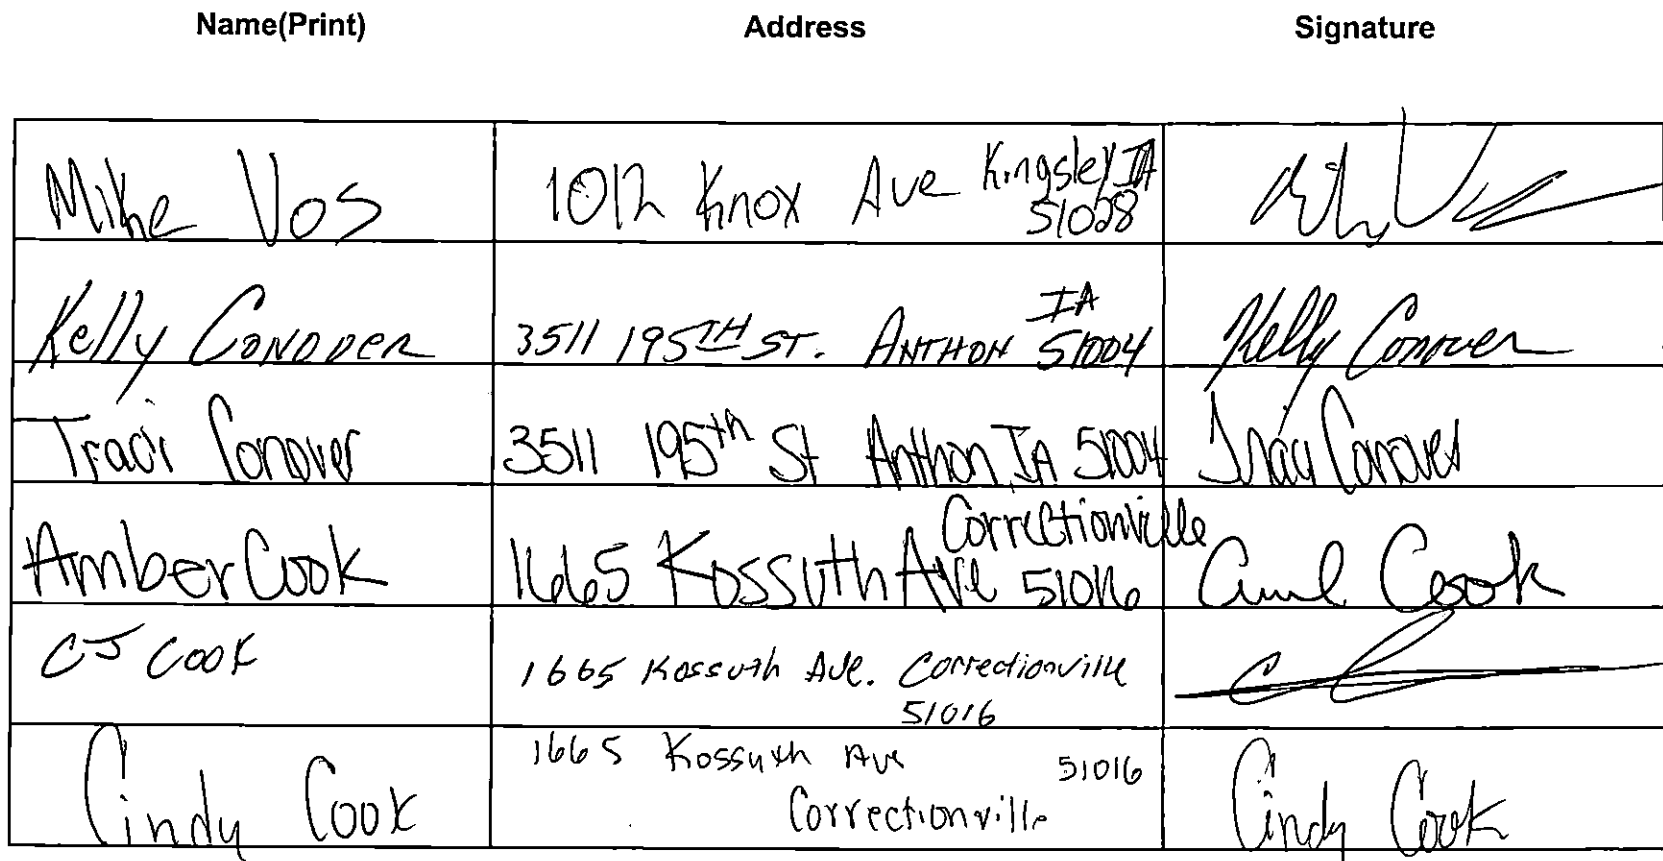 Name(Print) Address Signature
Mike Vos 1012 Knox Ave Kingsley IA 51028
Kelly Conover 3511 195TH ST. ANTHON IA 51004 Kelly Conover
Traci Conover 3511 195th St Anthon, IA 51004 Traci Conover
Amber Cook 1665 Kossuth Ave Correctionville 51016 Cook
CJ COOK 1665 Kossuth Ave. Correctionville 51016
Cindy Cook 1665 Kossuth Ave 51016 Correctionville Cindy Cook